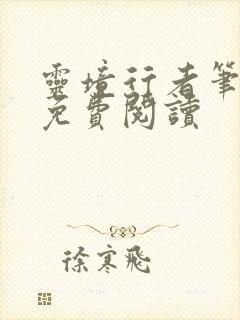 靈境行者筆
免費閱讀
徐寒飛